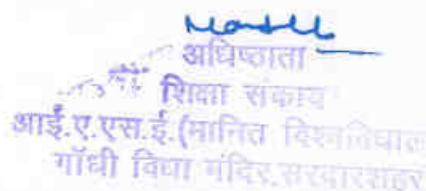 अधिष्ठाता
शिक्षा संकाय
आई.ए.एस.ई.(मानित विश्वविद्याल
गाँधी विद्या मंदिर,सरदारशहर